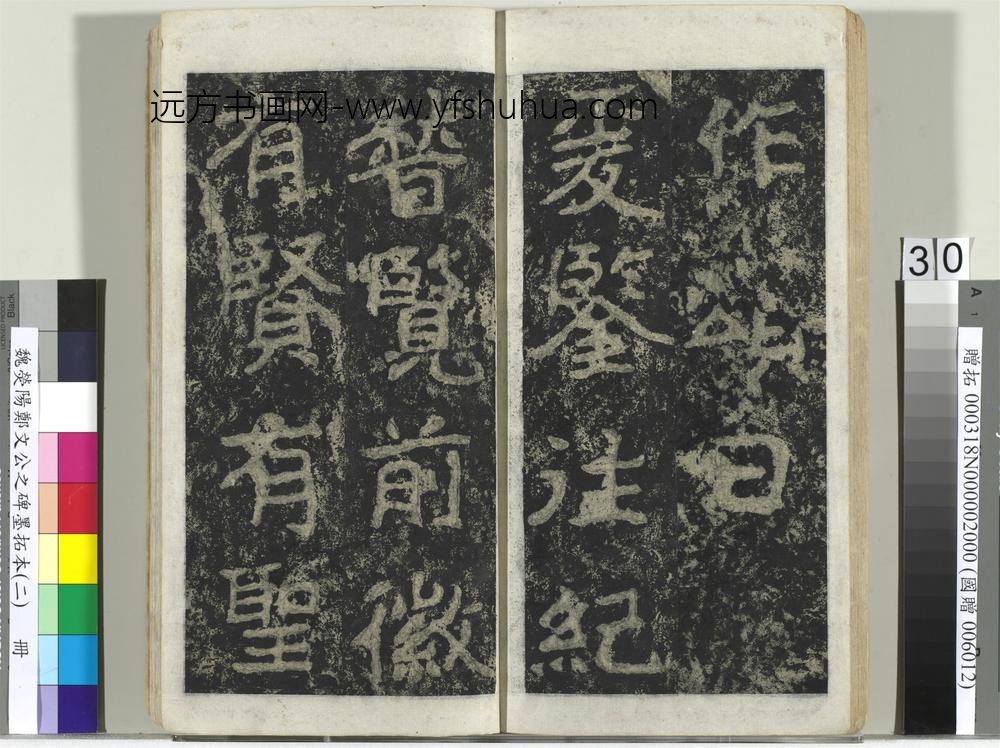 远方书画网-www.yfshuhua.com
作銘曰
爰鑒往紀
覽前徽
有賢有聖
30
A 1
贈拓 000318N000002000 (國贈 006012)
魏滎陽鄭文公之碑墨拓本(二) 冊
Black